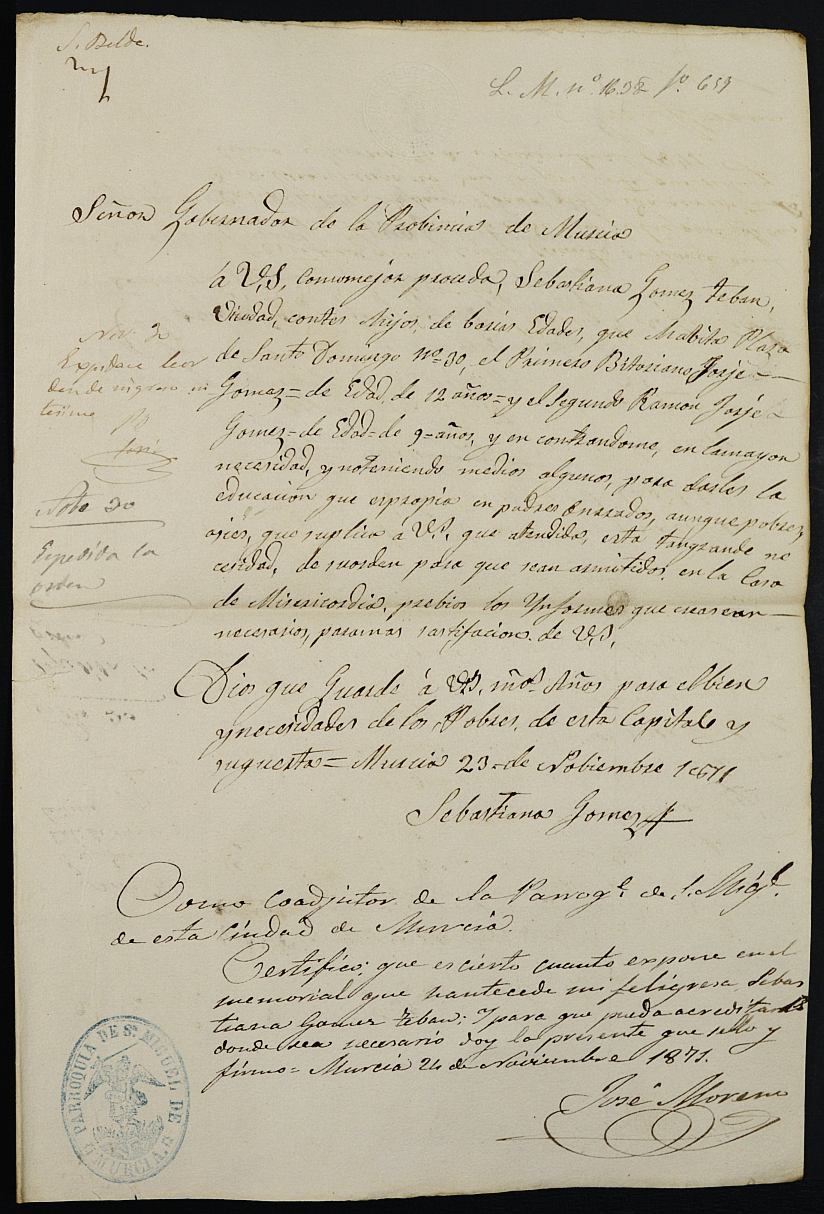 S. Belda.
L. M. nº 1632 fº 659
Señor Gobernador de la Probincia de Murcia
á V,S, comomejor proceda, Sebastiana Gomez Teban,
Viudad, contes Hijos, de barias Edades, que Habita Plaza
de Santo Domingo nº 30, el Primero Bitoriano Josje
Gomez = de Edad, de 12 años = y el Segundo Ramon Josje
Gomez = de Edad = de 9 = años, y en contrandome, en lamayor
necesidad, y noteniendo medios algunos, para darles la
educacion que espropia en padres onrrados, aunque pobres,
asies, que suplica á V.S, que atendida, esta tangrande ne
cesidad, de suorden para que sean asmitidos. en la Casa
de Misericordia, prebios los Ynformes que crea sean
necesarios, paramas sastifacion. de V,S,
Dios que Guarde á V.S, mos. Años para elbien
y necesidades de los Pobres, de esta Capital y
supuesta = Murcia 23 = de Nobiembre 1871
Sebastiana Gomez
Nov. 30
Espidase la or
den de ingreso in
terino
Nota 30
Espedida la
orden
Como coadjutor de la Parroql. de S. Migl.
de esta Ciudad de Murcia.
Certifico: que es cierto cuanto expone en el
memorial que hantecede mi feligresa, Sebas
tiana Gomez Teban: y para que pueda acreditarlo
donde sea necesario doy la presente que sello y
firmo = Murcia 24 de Noviembre 1871.
José Moreno
PARROQUIA DE Sn MIGUEL DE MURCIA